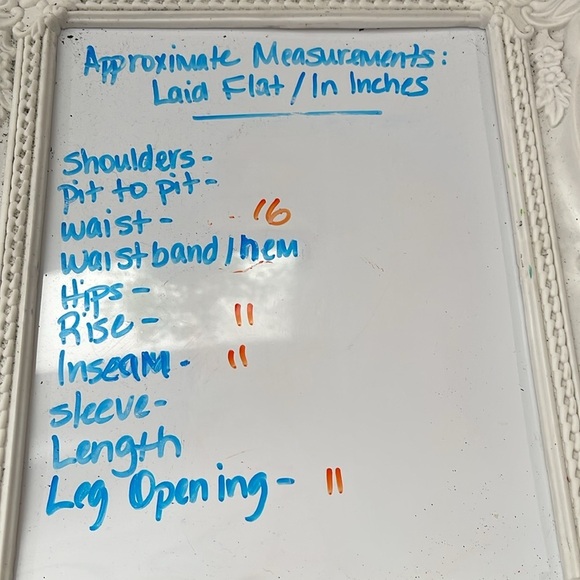 Approximate Measurements:
Laid Flat/In Inches
Shoulders-
pit to pit-
waist- 16
waistband/hem
Hips-
Rise- 11
Inseam- 11
sleeve-
Length
Leg Opening- 11